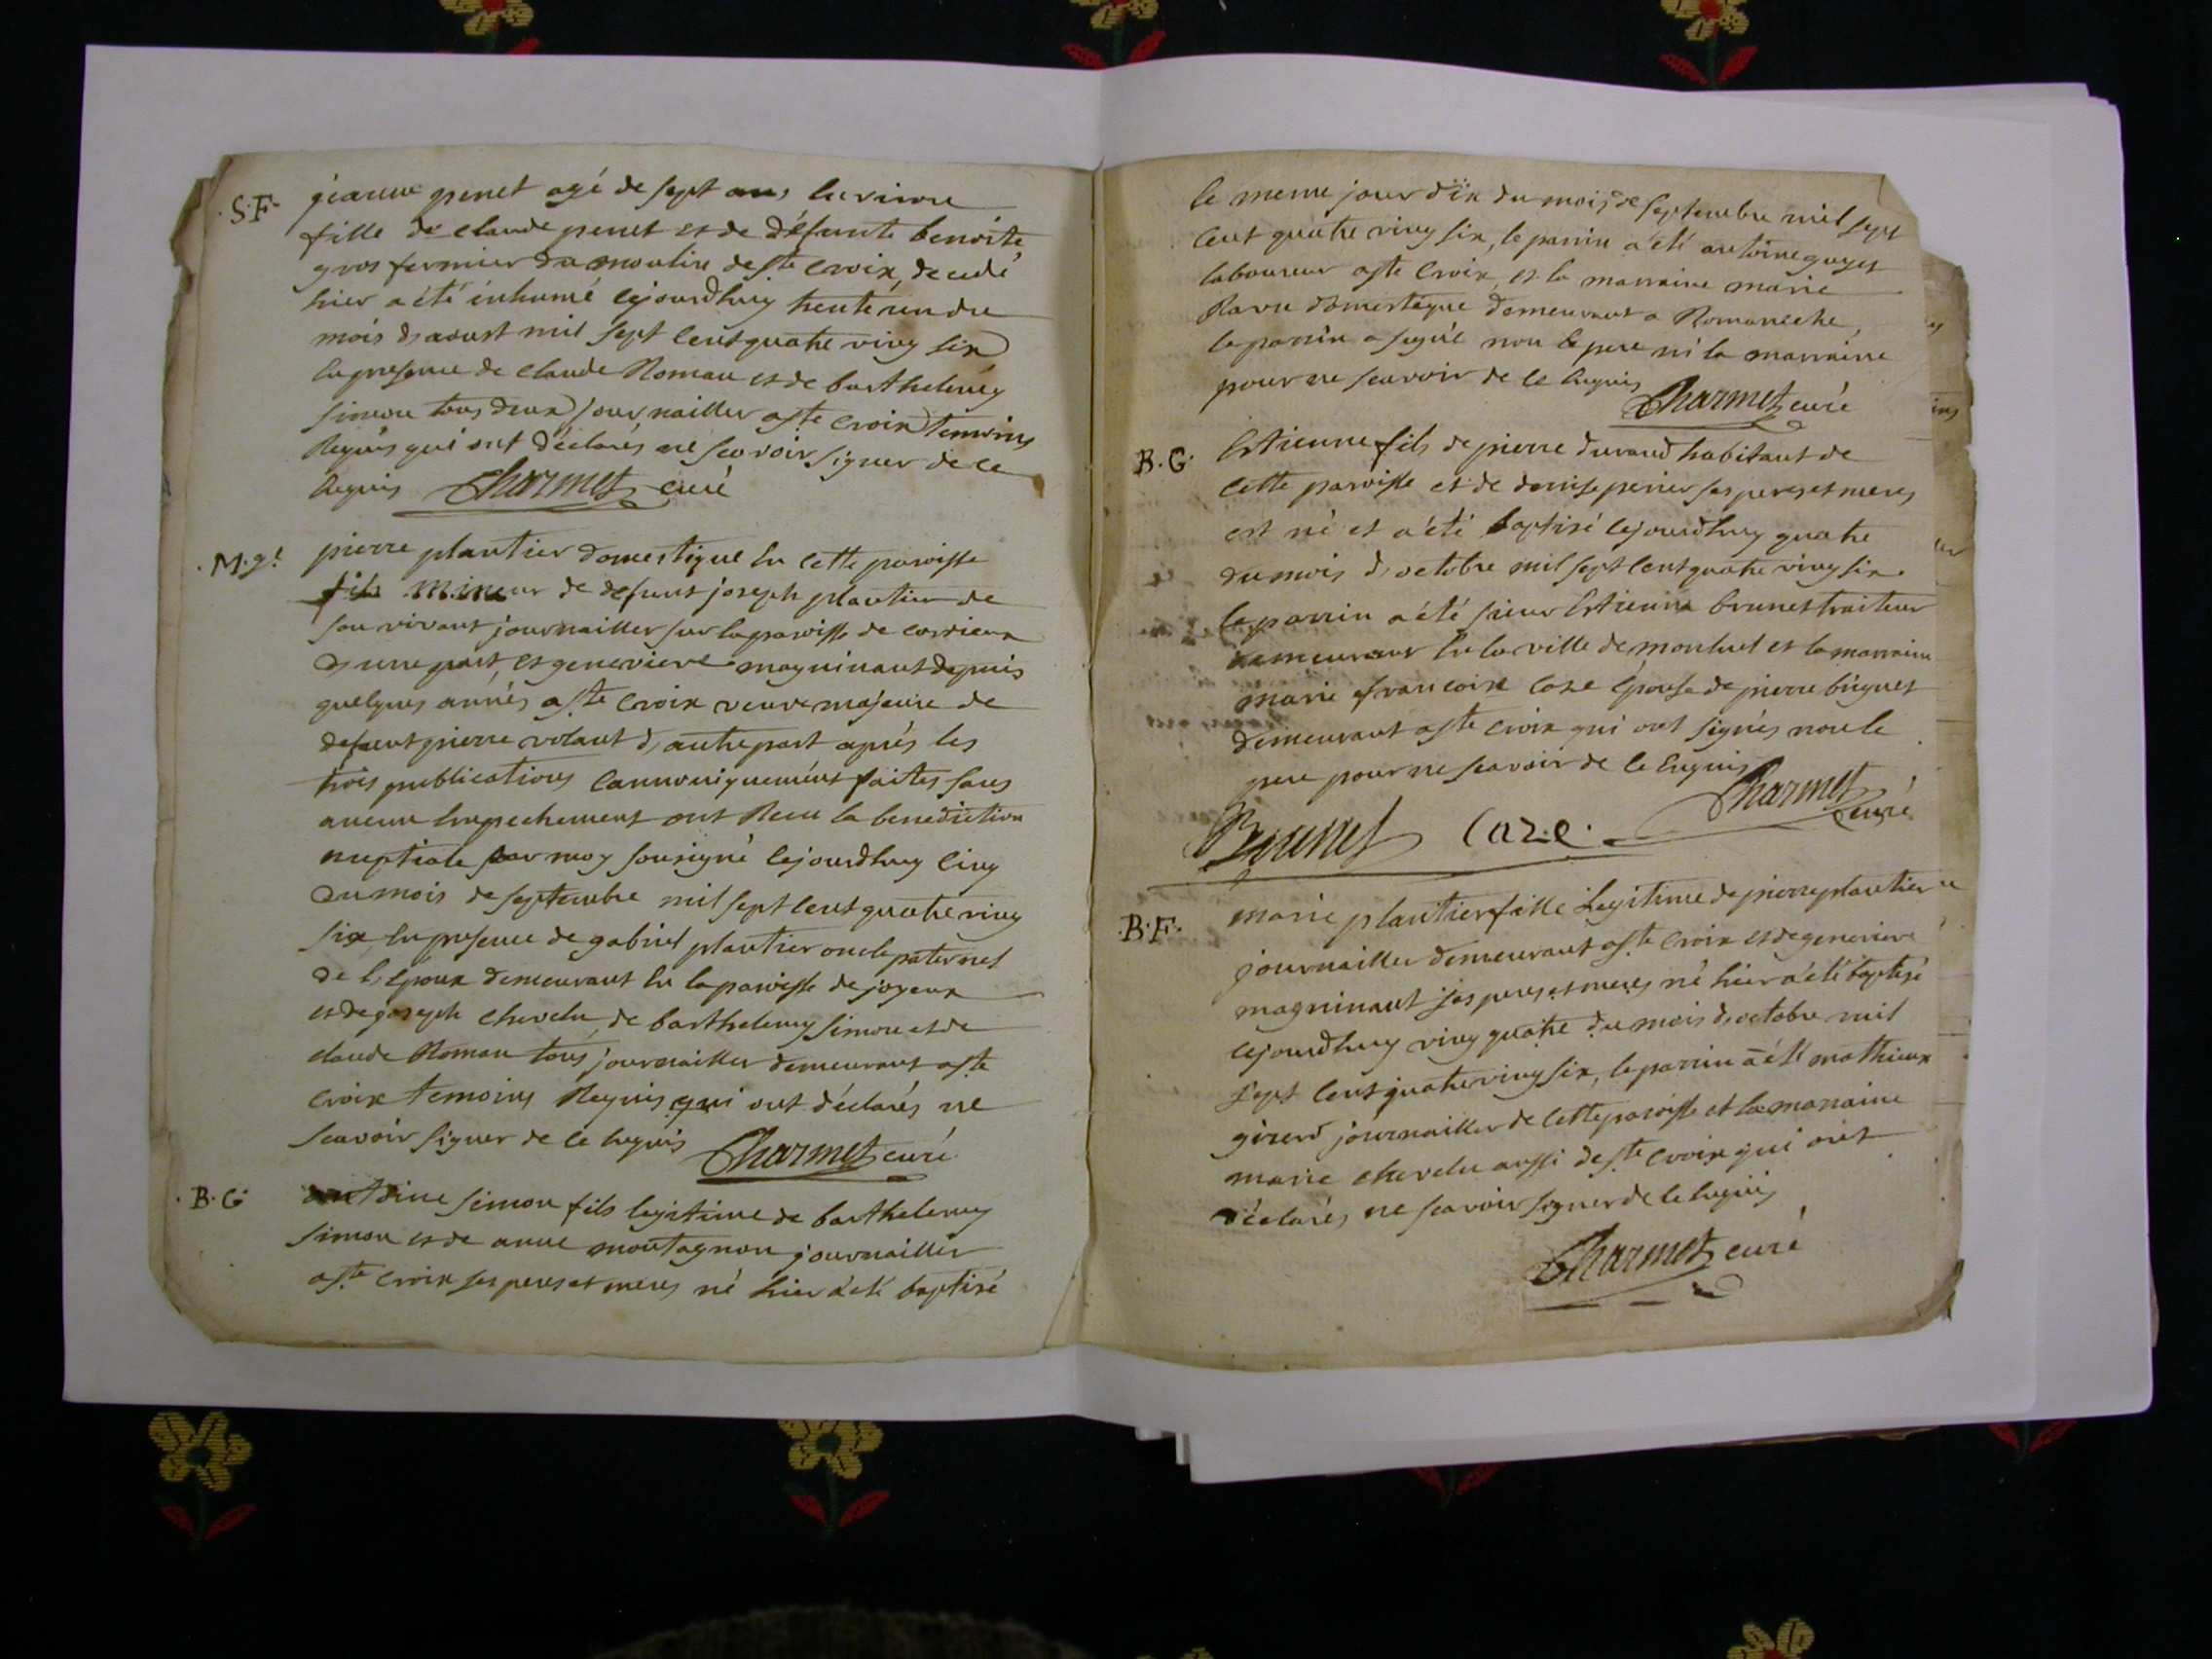 S.F.
jeanne penet agé de sept ans environ
fille de claude penet et de défunte benoite
gros fermier du moulin de ste Croix, decedé
hier a été inhumé cejourdhuy trente un du
mois d'aoust mil sept cent quatre ving six
en presence de claude Roman et de barthelemy
simon tous deux journailler a ste croix temoins
Requis qui ont déclarés ne scavoir signer de ce
Enquis Charmet curé
M.gé
pierre plantier domestique en cette paroisse
fils mineur de defunt joseph plantier de
son vivant journailler sur la paroisse de cordieux
d'une part, et genevieve magninant depuis
quelques annés a ste Croix veuve majeure de
defunt pierre volant d'autre part aprés les
trois publications cannoniquemént faites sans
aucun Empechement ont Recu la benediction
nuptiale par moy sousigné cejourdhuy cinq
du mois de septembre mil sept cent quatre ving
six en presence de gabriel plantier oncle paternel
de l'époux demeurant en la paroisse de joyeux
et de joseph chevelu, de barthelemy simon et de
claude Roman tous journailler demeurant a ste
Croix temoins Requis qui ont déclarés ne
scavoir signer de ce Enquis Charmet curé
B.G.
antoine simon fils legitime de barthelemy
simon et de anne montagnon journailler
a ste croix ses peres et meres né hier a été baptisé
le meme jour dix du mois de septembre mil sept
cent quatre ving six, le parrin a été antoine guyet
laboureur a ste Croix, et la marraine marie
Ravu domestique demeurant a Romaneche,
le parrin a signé non le pere ni la marraine
pour ne scavoir de ce Enquis
Charmet curé
B.G.
Estienne fils de pierre durand habitant de
cette paroisse et de denise perier ses peres et meres
est né et a été baptisé cejourdhuy quatre
du mois d'octobre mil sept cent quatre ving six
le parrin a été sieur Estienne brunet traiteur
demeurant En la ville de montluel et la marraine
marie francoise caze épouse de pierre buguet
demeurant a ste croix qui ont signés non le
pere pour ne scavoir de ce Enquis
Charmet
curé
Brunet Caze
B.F.
marie plantier fille Legitime de pierre plantier
journailler demeurant a ste Croix et de genevieve
magninant ses peres et meres né hier a été baptisé
cejourdhuy ving quatre du mois d'octobre mil
sept cent quatre ving six, le parrin a été mathieux
girerd journailler de cette paroisse et la marraine
marie chevelu aussi de ste croix qui ont
déclarés ne scavoir signer de ce Enquis
Charmet curé